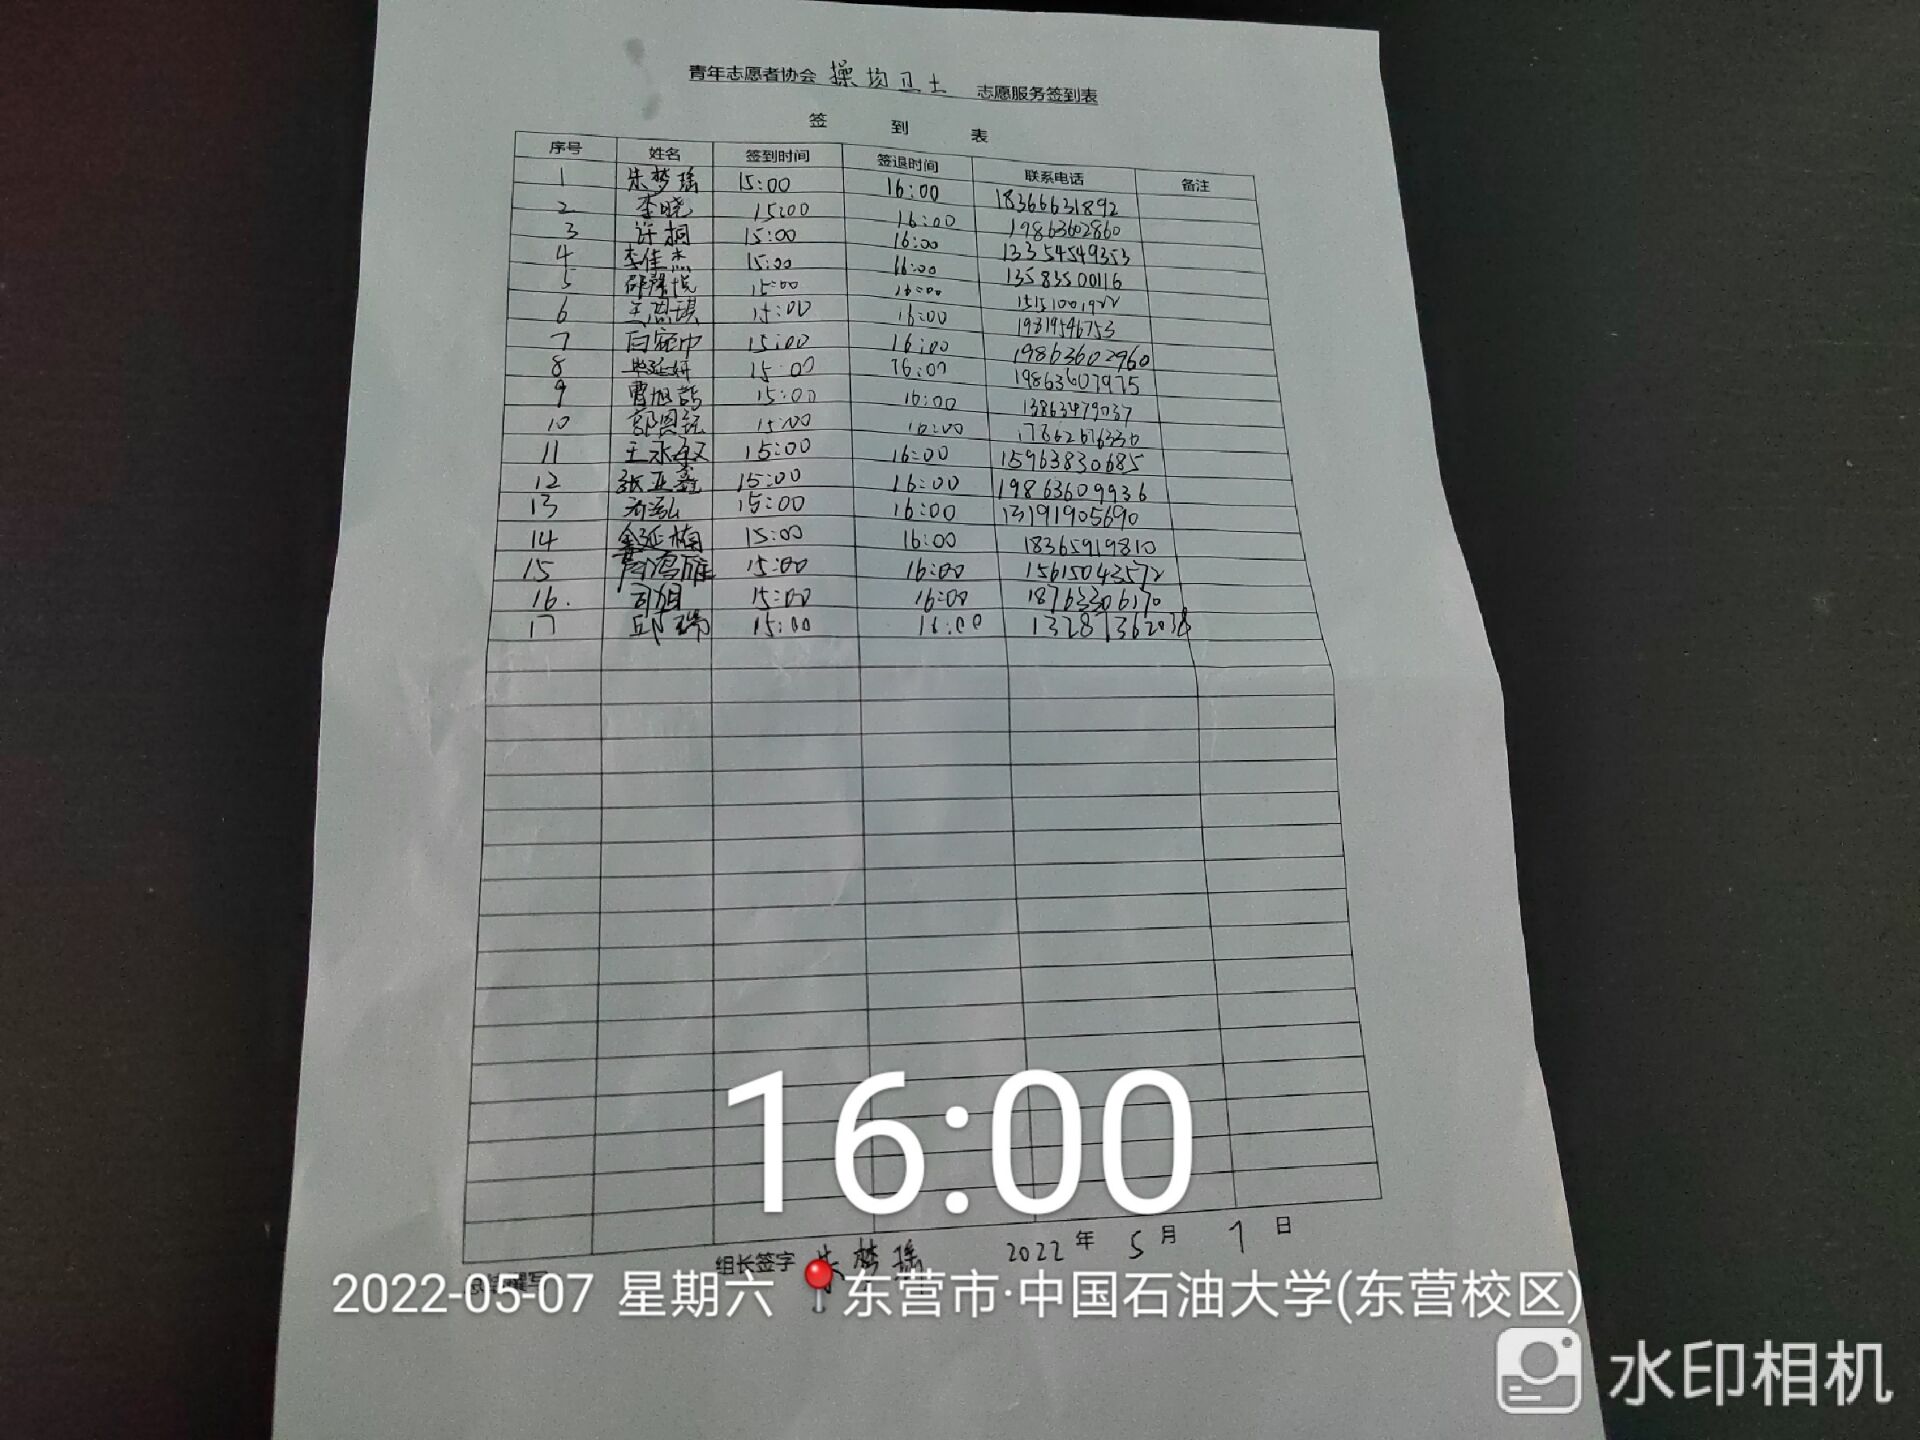 青年志愿者协会 操场卫士 志愿服务签到表
签 到 表
序号 姓名 签到时间 签退时间 联系电话 备注
1 朱梦瑶 15:00 16:00 18366631892
2 李晓 15:00 16:00 19863602860
3 许桐 15:00 16:00 13354549353
4 李佳杰 15:00 16:00 13583500116
5 15:00 16:00 15151001922
6 王恩琪 15:00 16:00 19819546753
7 15:00 16:00 19863602960
8 15:00 16:00 19863607975
9 15:00 16:00 13863479037
10 15:00 16:00 17862676330
11 15:00 16:00 15963830685
12 张亚鑫 15:00 16:00 19863609936
13 15:00 16:00 13191905690
14 15:00 16:00 18365919810
15 15:00 16:00 15615043572
16. 司旭 15:00 16:00 18763306170
17 邱瑞 15:00 16:00
16:00
组长签字 朱梦瑶 2022 年 5 月 7 日
2022-05-07 星期六 东营市·中国石油大学(东营校区)
水印相机